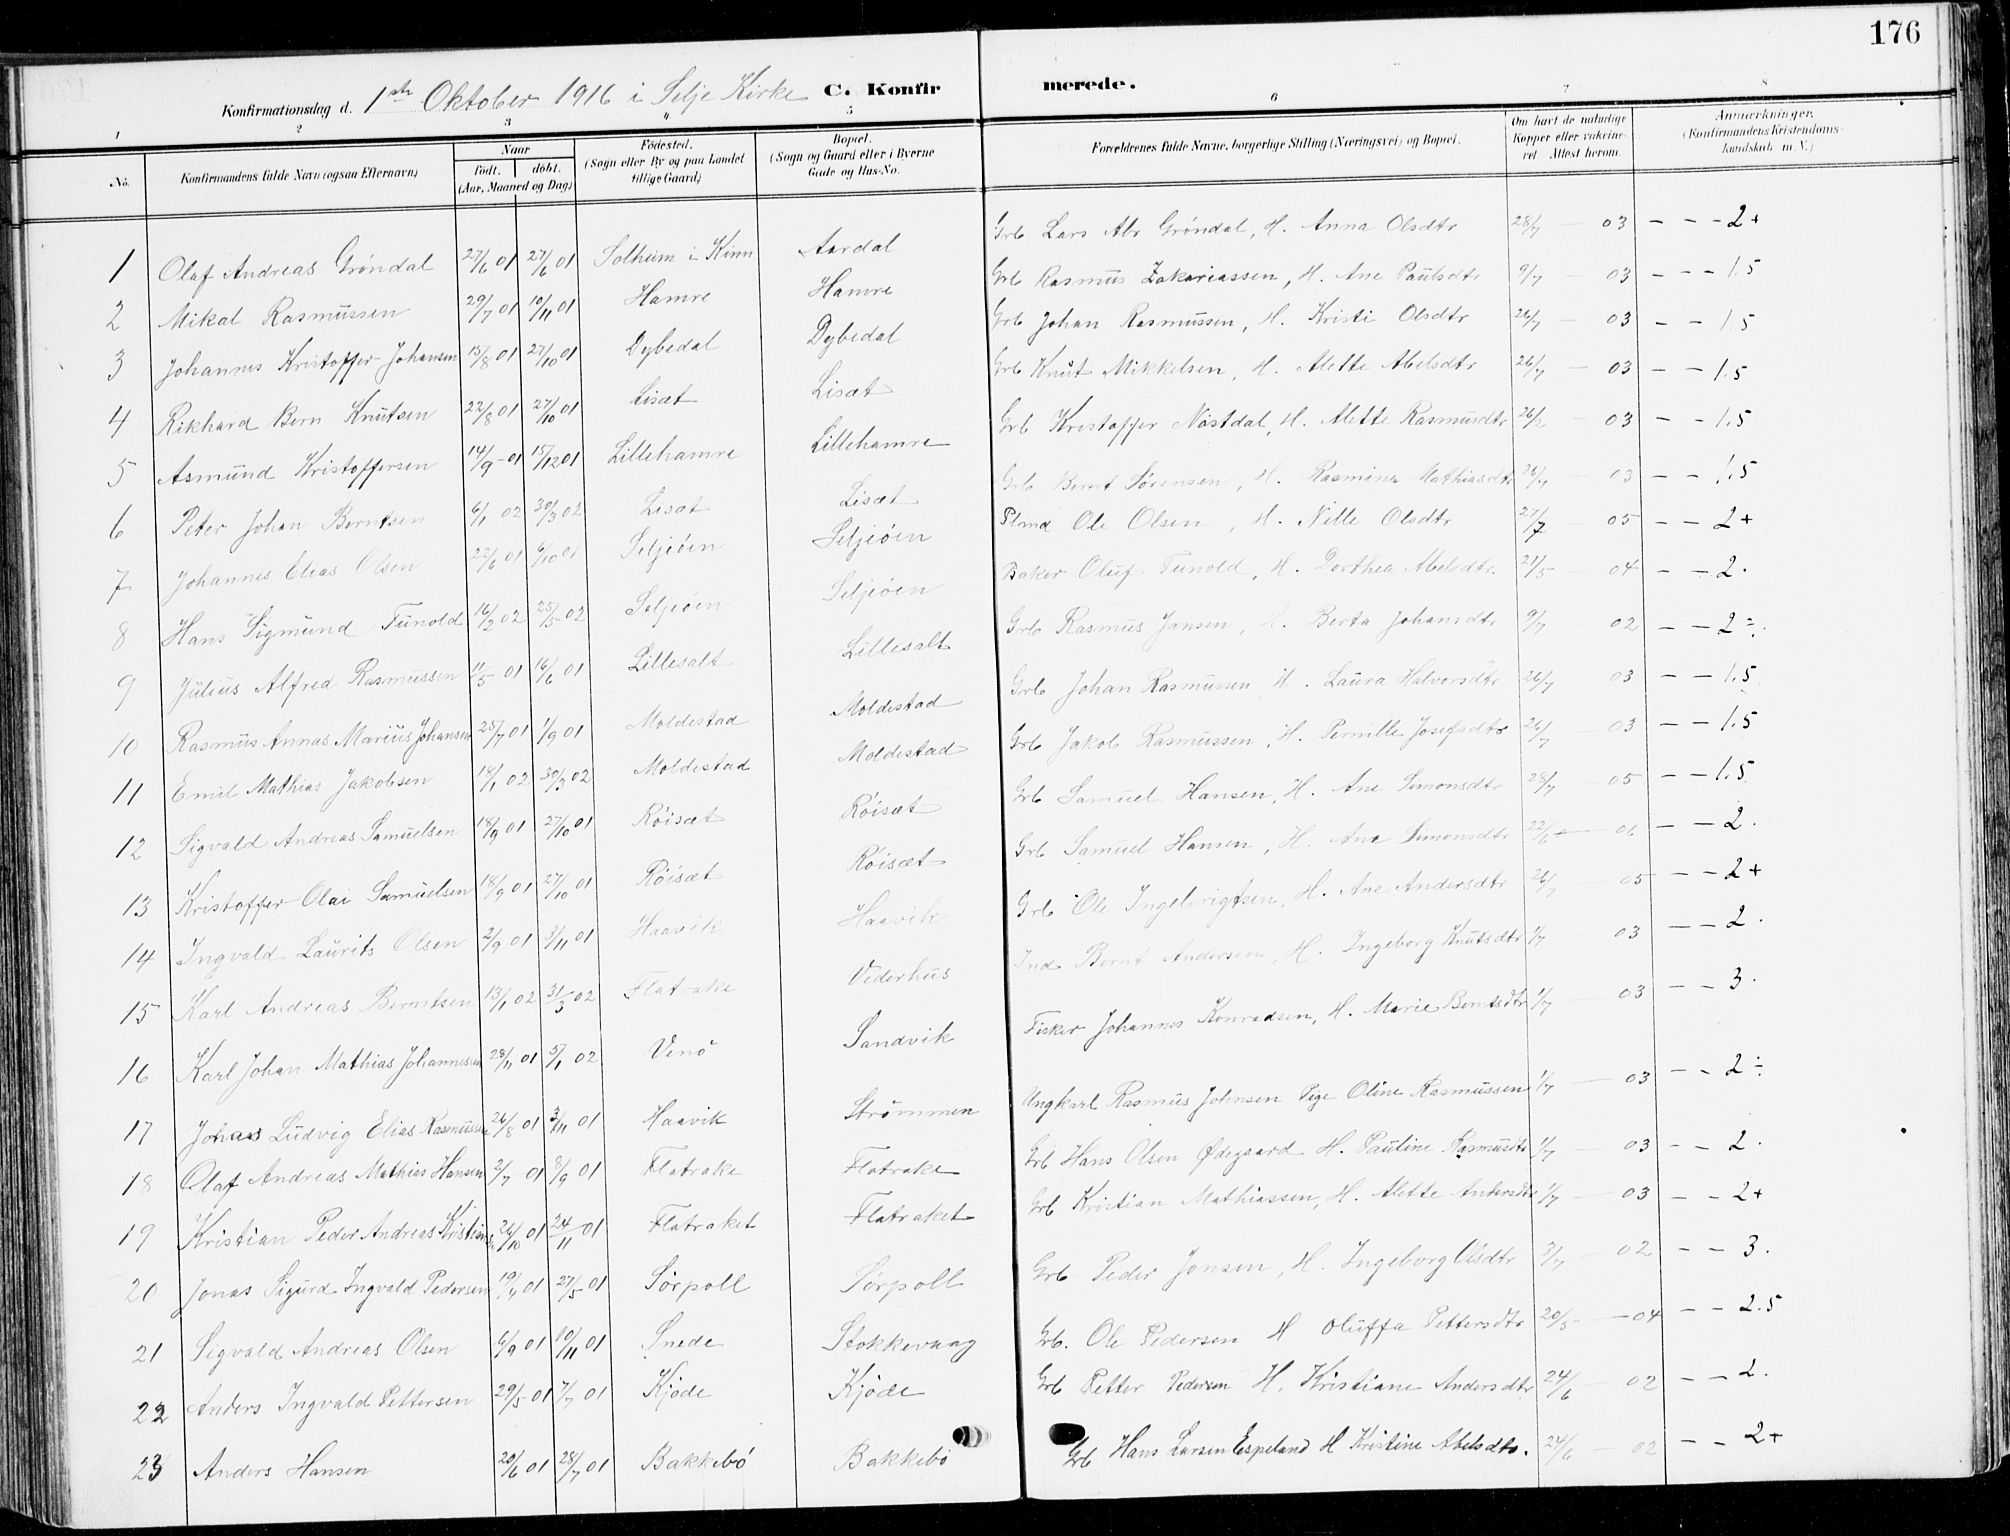 176
Konfirmationsdag d. 1ste Oktober 1916 i Selje Kirke C. Konfirmerede.
1 2 3 4 5 6 7 8
No. Konfirmandens fulde Navn (ogsaa Efternavn) Naar født. døbt. (Aar, Maaned og Dag) Fødested. (Sogn eller By og paa Landet tillige Gaard) Bopæl. (Sogn og Gaard eller i Byerne Gade og Hus-No. Forældrenes fulde Navne, borgerlige Stilling (Næringsvei) og Bopæl. Om havt de naturlige Kopper eller vakcineret Attest herom. Anmerkninger. (Konfirmandens Kristendomskundskab m.V.)
1 Olaf Andreas Grøndal 27/6 01 27/6 01 Solheim i Kinn Aardal Grb Lars Abr Grøndal, H. Anna Olsdtr 28/7 — 03 — — — 2+
2 Mikal Rasmussen 29/7 01 10/11 01 Hamre Hamre Grb Rasmus Zakariassen, H. Ane Paulsdtr 9/7 — 03 — — — 1.5
3 Johannes Kristoffer Johansen 15/8 01 27/10 01 Dybedal Dybedal Grb Johan Rasmussen, H. Kristi Olsdtr 26/7 — 03 — — 1.5
4 Rikhard Bern Knutsen 22/8 01 27/10 01 Lisæt Lisæt Grb Knut Mikkelsen, H. Alette Abelsdtr 26/7 — 03 — — 1.5
5 Asmund Kristoffersen 14/9 01 15/12 01 Lillehamre Lillehamre Grb Kristoffer Nøstdal, H. Alette Rasmusdtr 26/7 — 03 — — 1.5
6 Peter Johan Berntsen 6/1 02 30/3 02 Lisæt Lisæt Grb Bernt Sørensen, H. Rasmine Mathiasdtr 26/7 — 03 — — 1.5
7 Johannes Elias Olsen 22/6 01 6/10 01 Seljeøen Seljeøen Plmd Ole Olsen, H. Nille Olsdtr 27/7 — 05 — — 2+
8 Hans Sigmund Tunold 16/2 02 25/5 02 Seljeøen Seljeøen Baker Oluf Tunold, H. Dorthea Abelsdtr. 21/5 — 04 — — 2.
9 Julius Alfred Rasmussen 11/5 01 16/6 01 Lillesalt Lillesalt Grb Rasmus Jansen, H. Berta Johansdtr 9/7 — 02 — — 2÷.
10 Rasmus Annas Marius Johansen 25/7 01 1/9 01 Moldestad Moldestad Grb Johan Rasmussen H. Laura Halvorsdtr 26/7 03 — — 1.5
11 Emil Mathias Jakobsen 18/1 02 30/3 02 Moldestad Moldestad Grb Jakob Rasmussen, H. Pernille Josefsdtr 26/7 — 03 — — 1.5
12 Sigvald Andreas Samuelsen 18/9 01 27/10 01 Røisæt Røisæt Grb Samuel Hansen, H. Ane Simonsdtr 28/7 — 05 — — 1.5
13 Kristoffer Olai Samuelsen 18/9 01 27/10 01 Røisæt Røisæt Grb Samuel Hansen, H. Ane Simonsdtr 22/6 — 06 — — 2.
14 Ingvald Laurits Olsen 2/9 01 3/11 01 Haavik Haavik Grb Ole Ingebrigtsen, H. Ane Andersdtr 26/7 — 05 — — 2+
15 Karl Andreas Berntsen 13/1 02 31/3 02 Flatrake Viderhus Ind Bernt Andersen, H. Ingeborg Knutsdtr 1/7 — 03 — — 2.
16 Karl Johan Mathias Johannessen 28/11 01 5/1 02 Venø Sandvik Fisker Johannes Konradsen, H. Marie Berntsdtr 1/7 — 03 — — 3.
17 Johas Ludvig Elias Rasmussen 26/8 01 3/11 01 Haavik Strømmen Ungkarl Rasmus Johnsen Pige Oline Rasmussen 1/7 — 03 — — 2÷
18 Olaf Andreas Mathias Hansen 2/7 01 8/9 01 Flatrake Flatrake Grb Hans Olsen Ødegaard H. Pauline Rasmusdtr 1/7 — 03 — — 2.
19 Kristian Peder Andreas Kristians 26/10 01 24/11 01 Flatraket Flatraket Grb Kristian Mathiassen, H. Alette Andersdtr 1/7 — 03 — — 2+
20 Jonas Sigurd Ingvald Pedersen 19/4 01 27/5 01 Sørpoll Sørpoll Grb Peder Jonsen, H. Ingeborg Olsdtr 3/7 — 02 — — 3.
21 Sigvald Andreas Olsen 6/9 01 10/11 01 Snede Stokkevaag Grb. Ole Pedersen H Oluffa Pettersdtr 20/5 — 04 — — 2.5
22 Anders Ingvald Pettersen 29/5 01 7/7 01 Kjøde Kjøde Grb Petter Pedersen H. Kristiane Andersdtr 24/6 — 02 — — 2.
23 Anders Hansen 20/6 01 28/7 01 Bakkebø Bakkebø Grb Hans Larsen Espeland H Kristine Abelsdtr. 24/6 — 02 — — 2+